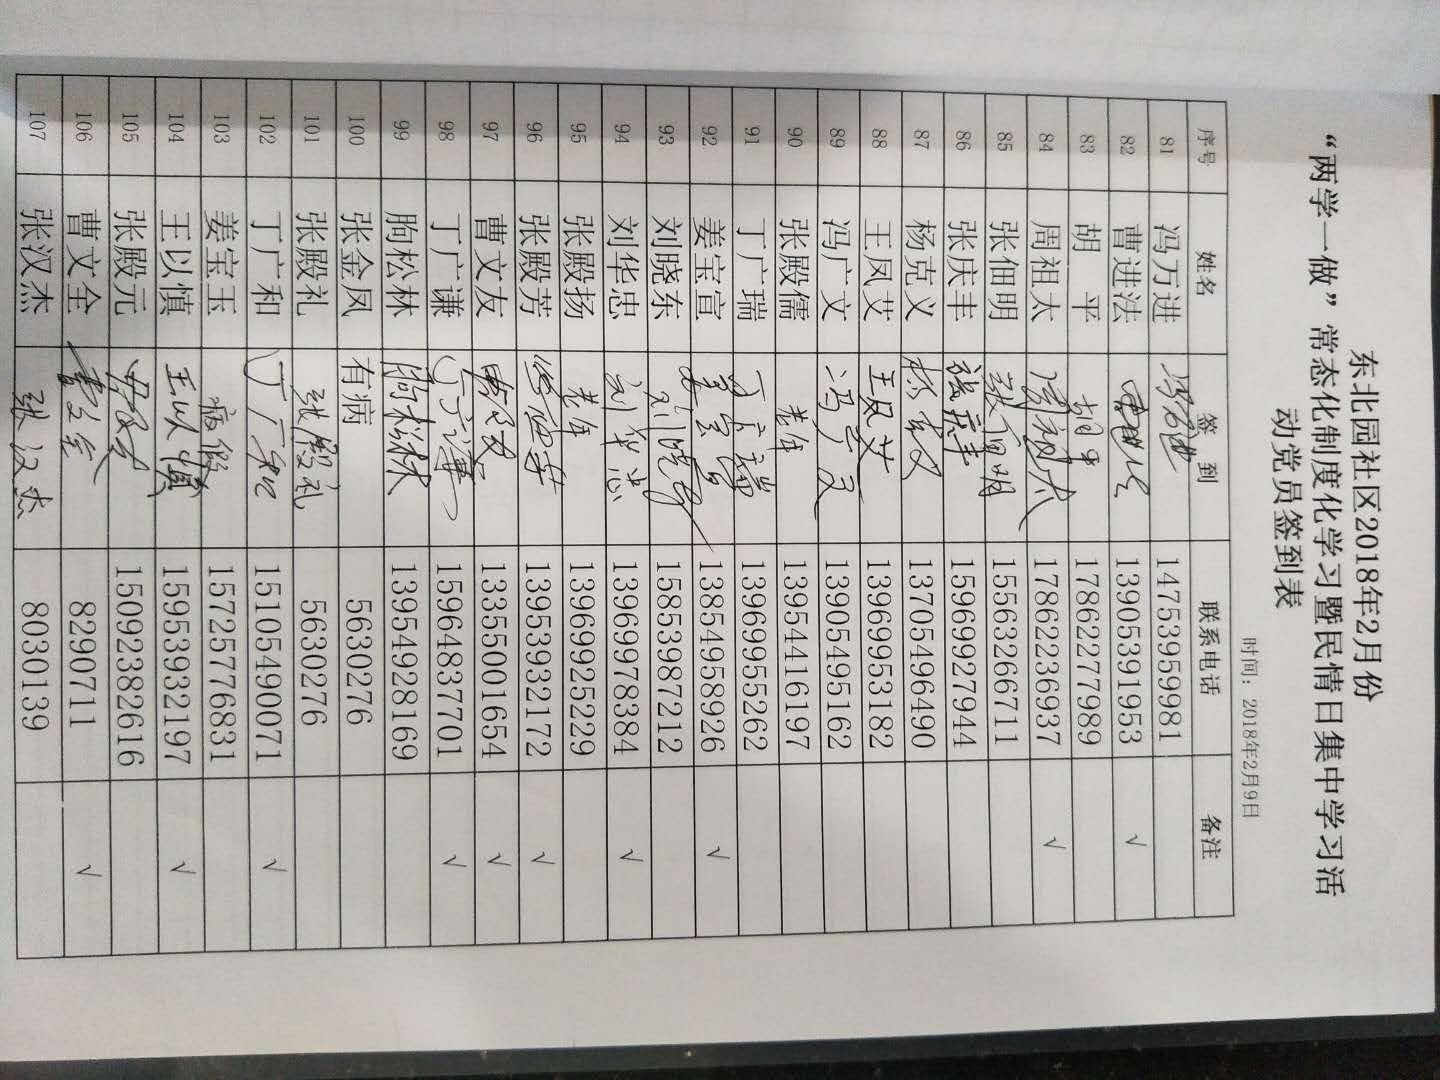 东北园社区2018年2月份
“两学一做”常态化制度化学习暨民情日集中学习活
动党员签到表
时间：2018年2月9日
序号 姓名 签 到 联系电话 备注
81 冯万进 14753959981
82 曹进法 13905391953 √
83 胡 平 胡平 17862277989
84 周祖太 周祖太 17862236937 √
85 张佃明 张佃明 15563266711
86 张庆丰 张庆丰 15969927944
87 杨克义 13705496490
88 王凤艾 王凤艾 13969953182
89 冯广文 冯广文 13905495162
90 张殿儒 老年 13954416197
91 丁广瑞 丁广瑞 13969955262
92 姜宝宣 姜宝宣 13854958926 √
93 刘晓东 刘晓东 15853987212
94 刘华忠 刘华忠 13969978384 √
95 张殿扬 老年 13969925229
96 张殿芳 13953932172 √
97 曹文友 13355001654 √
98 丁广谦 丁广谦 15964837701 √
99 朐松林 朐松林 13954928169
100 张金凤 有病 5630276
101 张殿礼 张殿礼 5630276
102 丁广和 丁广和 15105490071 √
103 姜宝玉 病假 15725776831
104 王以慎 王以慎 15953932197 √
105 张殿元 15092382616
106 曹文全 曹文全 8290711 √
107 张汉杰 张汉杰 8030139